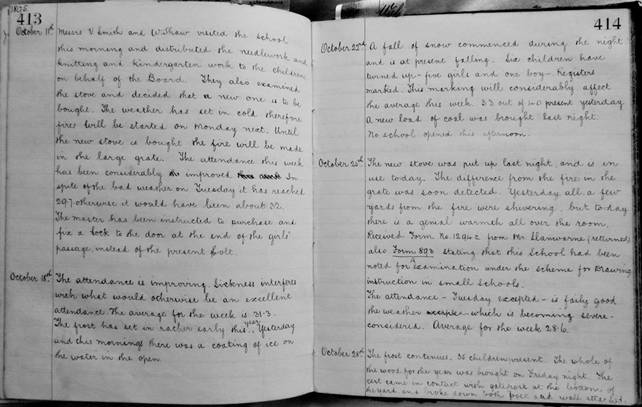 1895
413
October 11th Messrs V. Smith and W. Thaw visited the school
this morning and distributed the needlework and
knitting and Kindergarten work to the children
on behalf of the Board. They also examined
the stove and decided that a new one is to be
bought. The weather has set in cold therefore
fires will be started on Monday next. Until
the new stove is bought the fire will be made
in the large grate. The attendance this week
has been considerably improved. In
spite of the bad weather on Tuesday it has reached
29.7 otherwise it would have been about 32.
The master has been instructed to purchase and
fix a lock to the door at the end of the girls'
passage instead of the present bolt.
October 18th The attendance is improving. Sickness interferes
with what would otherwise be an excellent
attendance. The average for the week is 31.3.
The frost has set in rather early this year. Yesterday
and this morning there was a coating of ice on
the water in the open.
414
October 22nd A fall of snow commenced during the night
and is at present falling. Six children have
turned up - five girls and one boy - Registers
marked. This marking will considerably affect
the average this week. 33 out of 40 present yesterday.
A new load of coal was brought last night.
No school opened this afternoon.
October 25th The new stove was put up last night and is in
use today. The difference from the fire in the
grate was soon detected. Yesterday all a few
yards from the fire were shivering, but today
there is a genial warmth all over the room.
Received Form No. 1294 from Mr. (returned)
also Form 898 stating that this School had been
noted for Examination under the Scheme for Drawing
instruction in small schools.
The attendance - Tuesday excepted - is fairly good
the weather which is becoming severe -
considered. Average for the week 28.6.
October 28th The frost continues. 35 children present. The whole of
the wood for the year was brought on Friday night. The
cart came in contact with gatepost at the bottom of
the yard and broke down both post and wall attached.